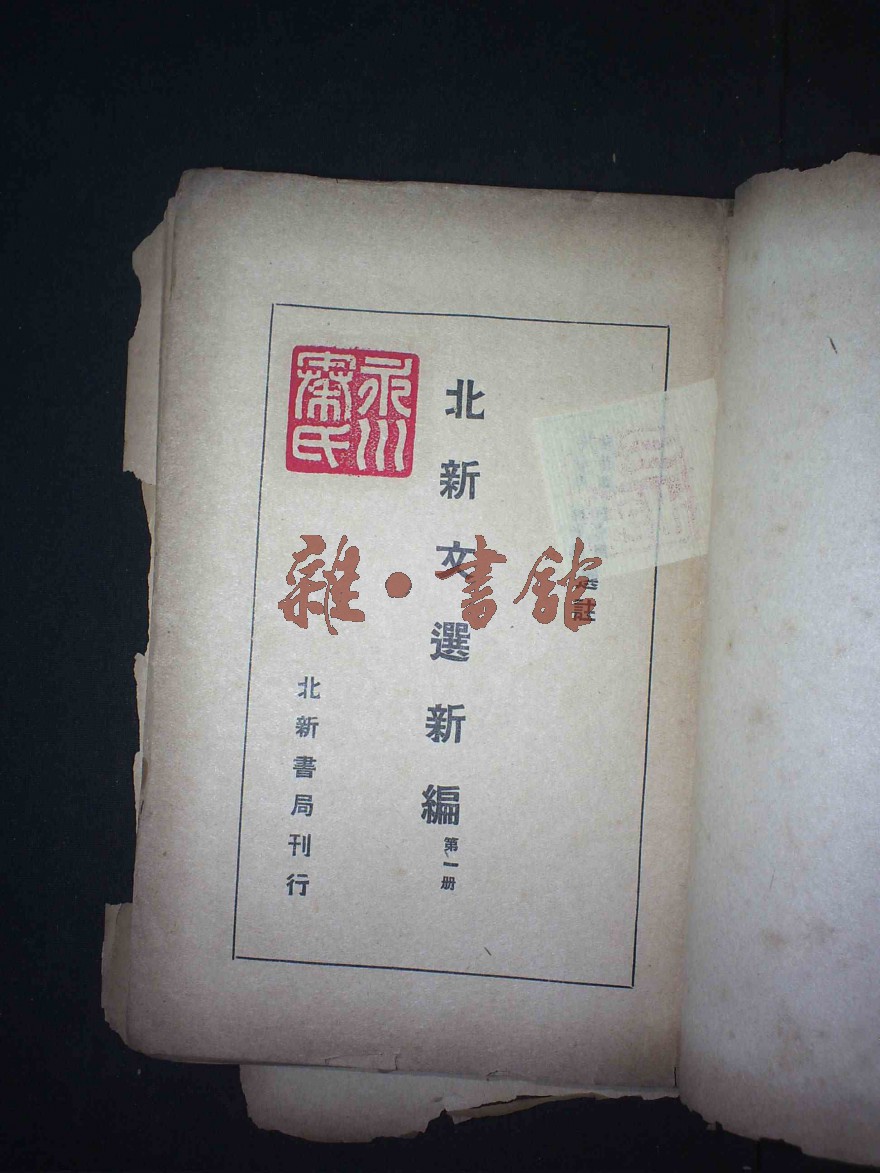 選註
北新文選新編 第一册
北新書局刊行
永川
氏
雜·書館